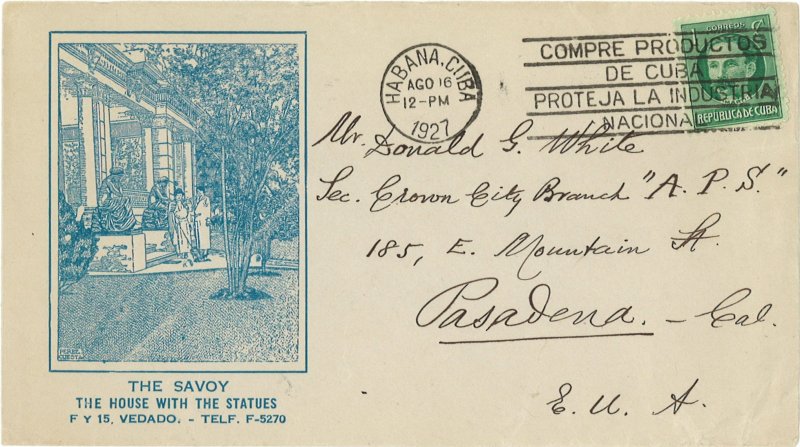 CORREOS
HABANA, CUBA
AGO 16
12-PM
1927
COMPRE PRODUCTOS
DE CUBA
PROTEJA LA INDUSTRIA
NACIONA
REPÚBLICA DE CUBA
Mr. Donald G. White
Sec. Crown City Branch "A. P. S."
185, E. Mountain St.
Pasadena. - Cal.
E. U. A.
PEREZ
THE SAVOY
THE HOUSE WITH THE STATUES
F Y 15, VEDADO. - TELF. F-5270